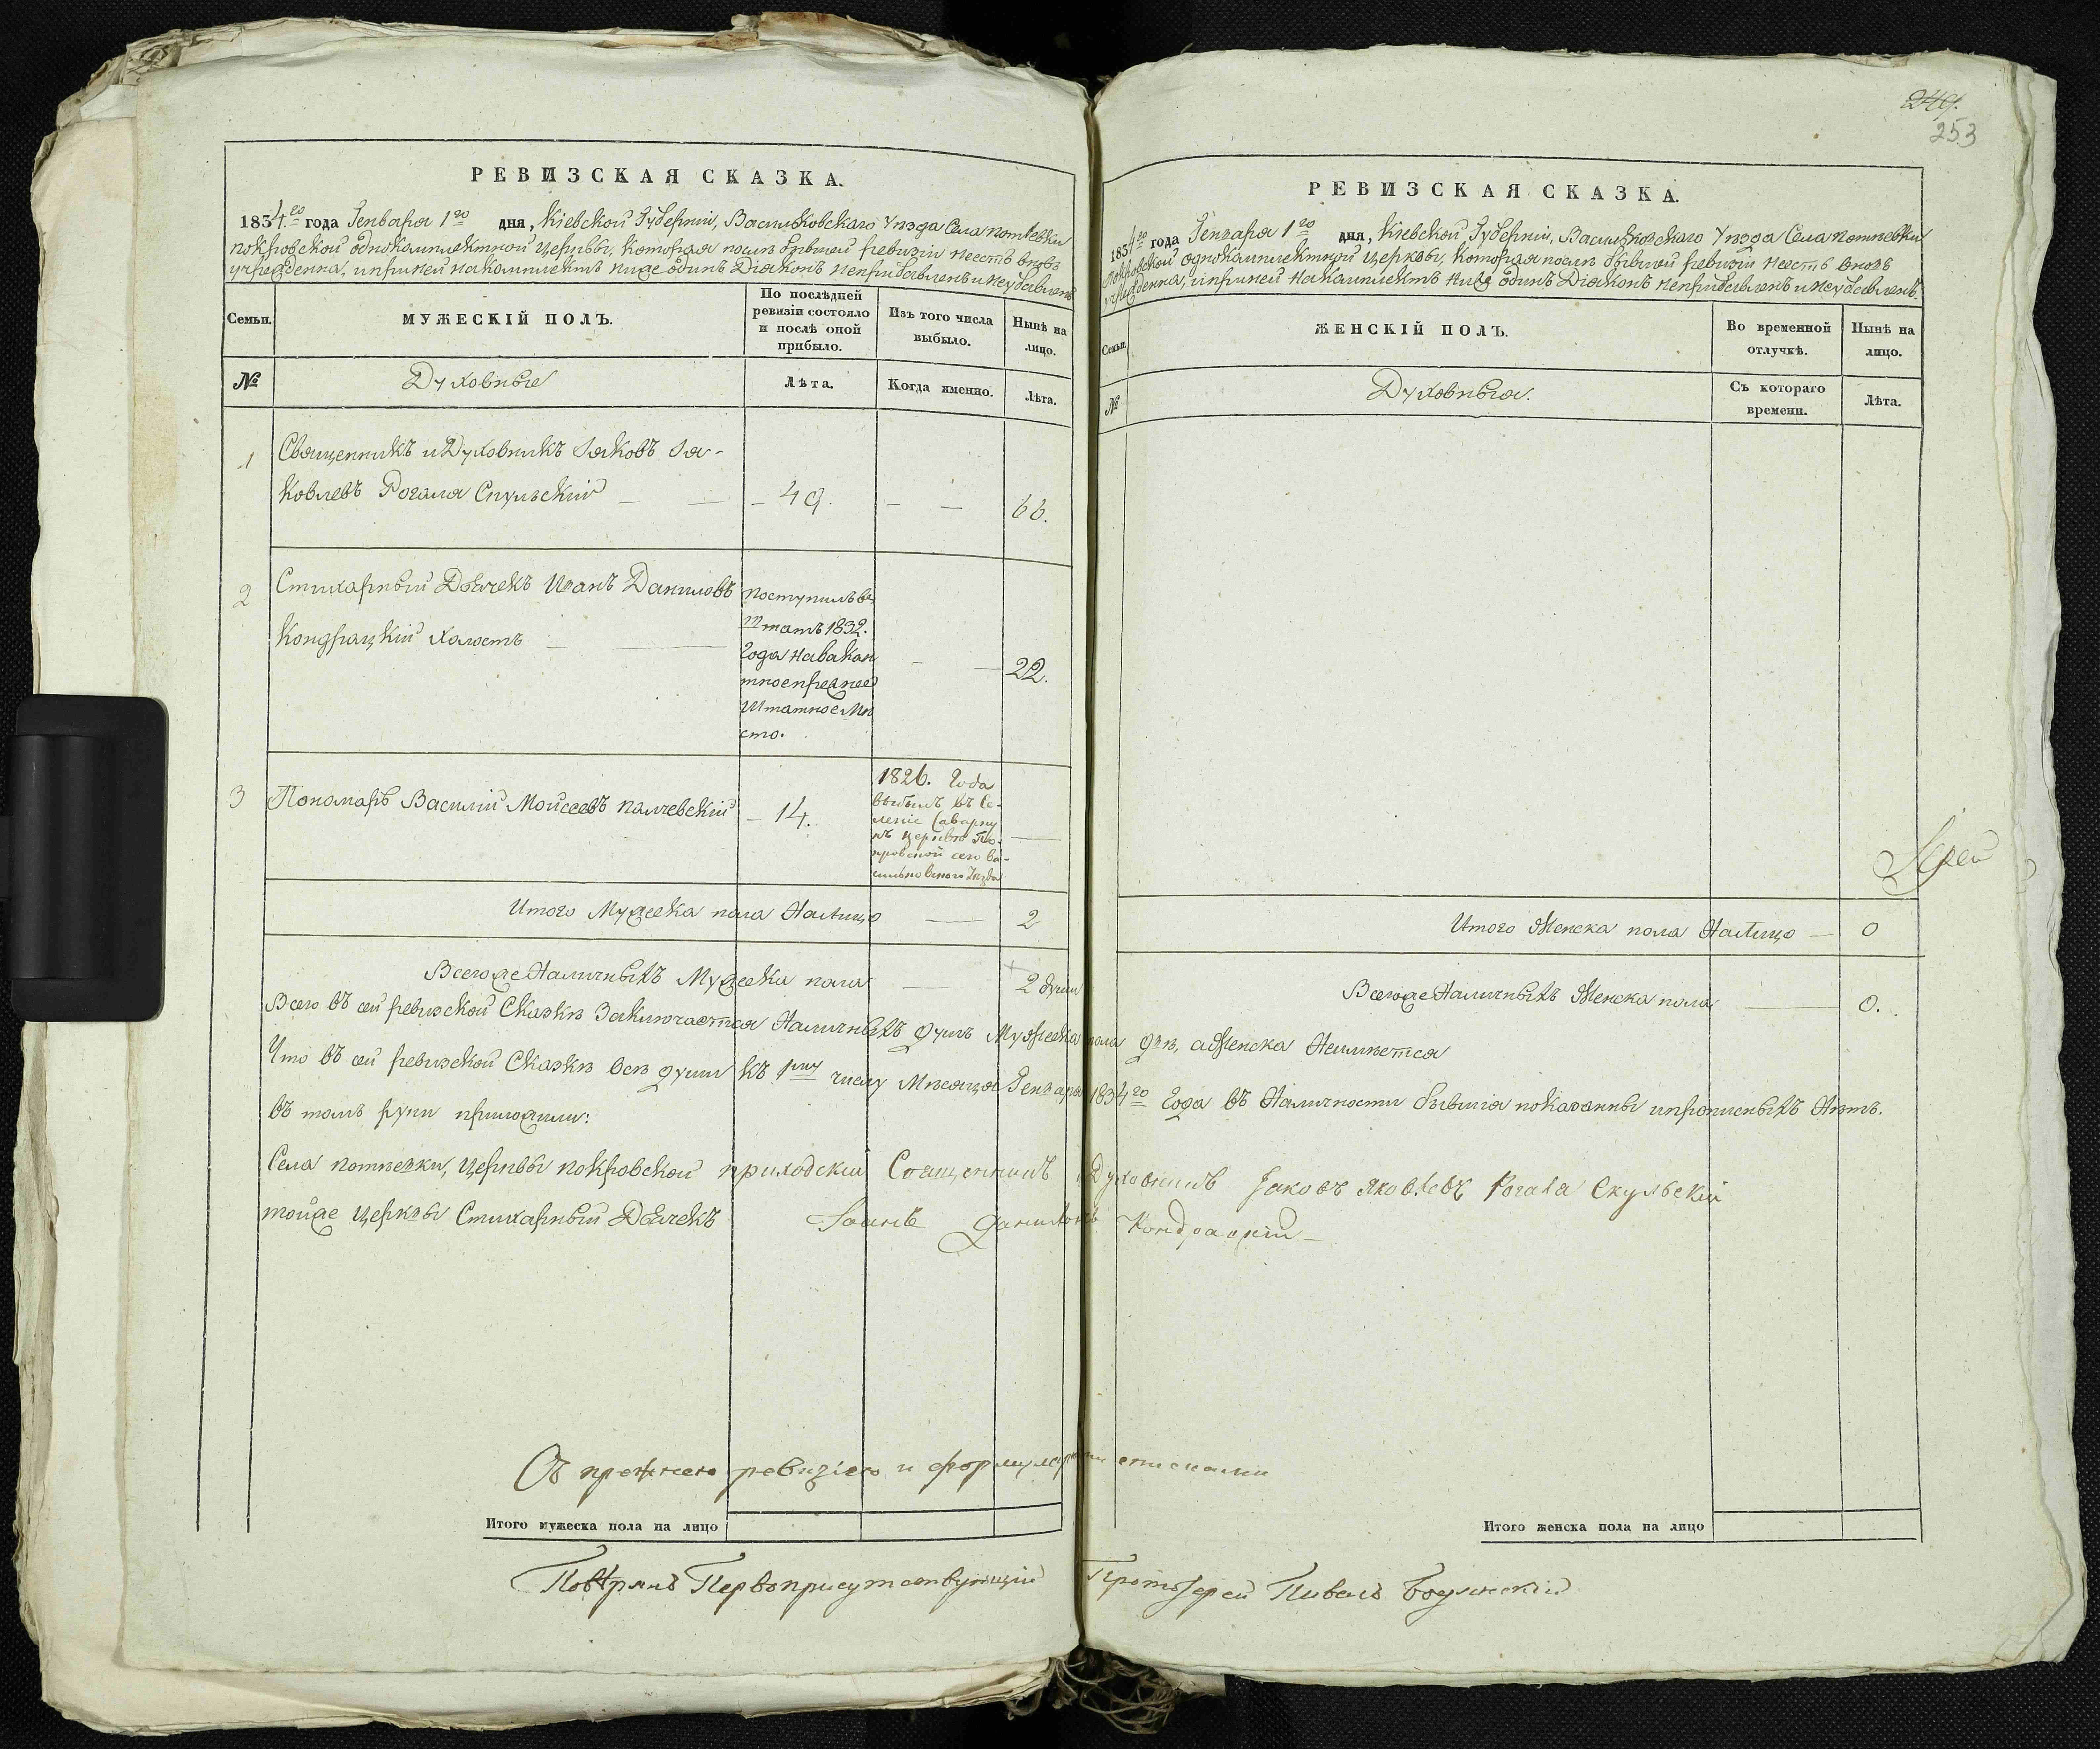 РЕВИЗСКАЯ СКАЗКА.
1834го года Генваря 1го дня, Кіевской Губерніи, Васильковскаго Уѣзда Села Потіевки
Покровской однокамплектной Церквы, которая послѣ бывшей ревизіи неесть вновь
учрежденна, и при ней на камплектъ ниже одинъ Діяконъ неприбавленъ и неубавленъ
Семьи.
МУЖЕСКІЙ ПОЛЪ.
По послѣдней
ревизіи состояло
и послѣ оной
прибыло.
Изъ того числа
выбыло.
Нынѣ на
лицо.
№
Духовные
Лѣта.
Когда именно.
Лѣта.
1
Священникъ и Духовникъ Іяковъ Ія-
ковлевъ Рогаля Скульскій
49.
66.
2
Стихарный Дьячекъ Иванъ Даниловъ
Кондрацкій холостъ
поступилъ въ
штатъ 1832.
Года на вакан
тное преднее
штатное мѣ
сто.
22.
3
Пономаръ Василій Моисеевъ Палчевскій
14.
1826. Года
выбылъ въ Се-
леніе Саварку
къ церквѣ По-
кровской сего Ва-
сильковского Уѣзда
Итого Мужеска пола На Лицо 2
Всего же Наличныхъ Мужеска пола 2 души
Всего въ сей ревизской Сказкѣ Заключается Наличныхъ душъ Мужеска пола двѣ, а Женска Неимѣется
Что въ сей ревизской Сказкѣ всѣ души къ 1му числу Мѣсяца Генваря 1834го Года въ Наличности бывшія показанны и прописныхъ Нѣтъ.
въ томъ руки приложили:
Села Потіевки, Церквы Покровской приходскій Священникъ и Духовникъ Іаковъ Яковлевъ Рогаля Скульскій
тойже Церквы Стихарный Дьячекъ Іоанъ Даниловъ Кондрацкій
Съ прежнею ревизіею и формулярными списками
Итого мужеска пола на лицо
Повѣрялъ Первоприсутствующій Протоіерей Павелъ
249.
253
РЕВИЗСКАЯ СКАЗКА.
1834го года Генваря 1го дня, Кіевской Губерніи, Васильковскаго Уѣзда Села Потіевки
Покровской однокамплектной Церквы, которая послѣ бывшей ревизіи неесть вновь
учрежденна, и при ней на камплектъ ниже одинъ Діяконъ неприбавленъ и неубавленъ.
Семьи.
ЖЕНСКІЙ ПОЛЪ.
Во временной
отлучкѣ.
Нынѣ на
лицо.
№
Духовныя.
Съ котораго
времени.
Лѣта.
Іерей
Итого Женска пола На Лицо 0
Всего же Наличныхъ Женска пола 0.
Итого женска пола на лицо